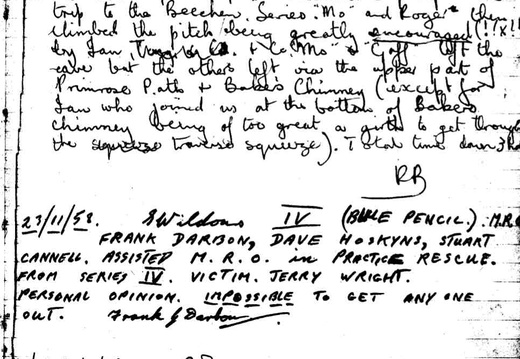 trip to the "Beechen Series. "Mo" and Roger then
climbed the pitch being greatly encouraged (!!X!!
by Ian, & Co. "Mo" & "Caff" left the
cave but the others left via the upper part of
Primrose Path & Baker's Chimney (except for
Ian who joined us at the bottom of Bakers
chimney being of too great a girth to get through
the squeeze traverse squeeze). Total time down 3
RB
23/11/58. SWildons IV (BIBLE PENCIL). M.R.O
FRANK DARBON, DAVE HOSKYNS, STUART
CANNELL. ASSISTED M.R.O. in PRACTICE RESCUE.
FROM SERIES IV. VICTIM. JERRY WRIGHT.
PERSONAL OPINION. IMPOSSIBLE TO GET ANY ONE
OUT. Frank G Darbon